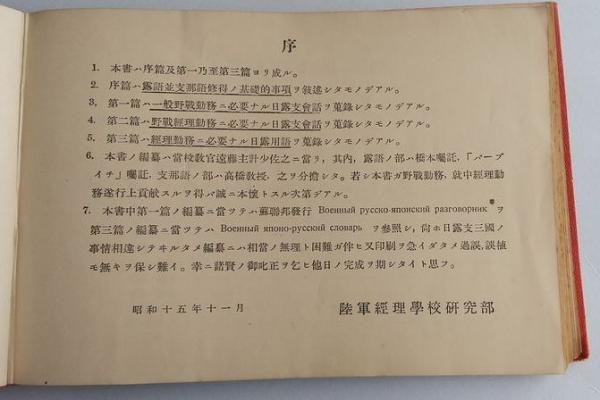 序
1. 本書ハ序篇及第一乃至第三篇ヨリ成ル。
2. 序篇ハ露語並支那語修得ノ基礎的事項ヲ敍述シタモノデアル。
3. 第一篇ハ一般野戰勤務ニ必要ナル日露支會話ヲ蒐錄シタモノデアル。
4. 第二篇ハ野戰經理勤務ニ必要ナル日露支會話ヲ蒐錄シタモノデアル。
5. 第三篇ハ經理勤務ニ必要ナル日露用語ヲ蒐錄シタモノデアル。
6. 本書ノ編纂ハ當校敎官遠藤主計少佐之ニ當リ，其内，露語ノ部ハ橋本囑託，「バーブ
イチ」囑託，支那語ノ部ハ高橋敎授，之ヲ分擔シタ。若シ本書ガ野戰勤務，就中經理勤
務遂行上貢獻スルヲ得バ誠ニ本懷トスル次第デアル。
7. 本書中第一篇ノ編纂ニ當ツテハ蘇聯邦發行 Военный русско-японский разговорник ヲ
第三篇ノ編纂ニ當ツテハ Военный японо-русский словарь ヲ參照シ，尙ホ日露支三國ノ
事情相違シテヰルタメ編纂ニハ相當ノ無理ト困難ガ伴ヒ又印刷ヲ急イダタメ過誤，誤植
モ無キヲ保シ難イ。幸ニ諸賢ノ御叱正ヲ乞ヒ他日ノ完成ヲ期シタイト思フ。
昭和十五年十一月
陸軍經理學校硏究部